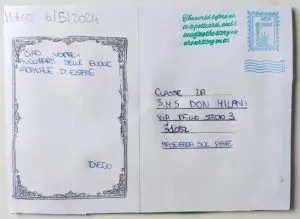 Metro 6/5/2024
CIAO VORREI
AUGURARTI DELLE BUONE
VACANZE DI ESTATE
DIEGO
The world before us
is a postcard, and I
imagine the story we
are writing on it.
CLASSE 2A
S.M.S DON MILANI
VIA DELLO STADIO 3
31052
MASERADA SUL PIAVE